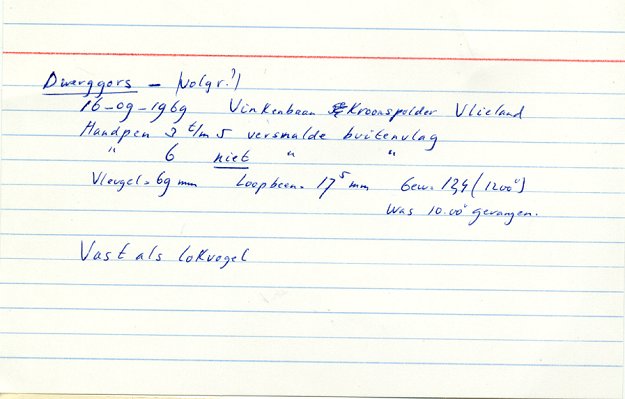 Dwerggors - (volgr.?)
16-09-1969 Vinkenbaan Kroonspolder Vlieland
Handpen 3 t/m 5 versmalde buitenvlag
" 6 niet " "
Vleugel = 69 mm Loopbeen = 17⁵ mm Gew. 13,4 (12.00°)
Was 10.00° gevangen.
Vast als lokvogel